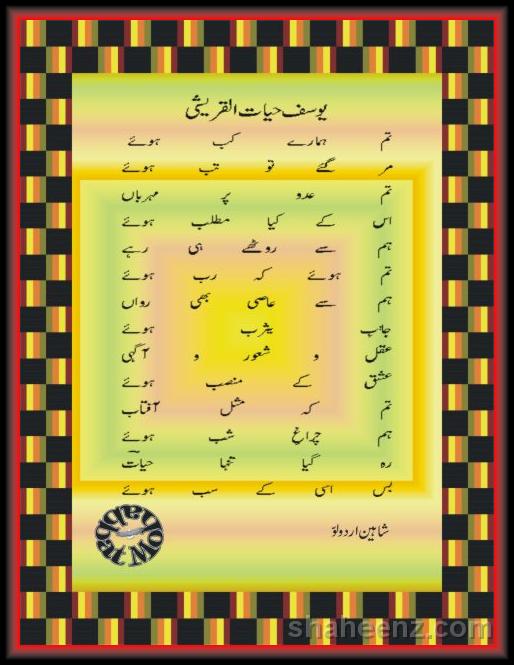 یوسف حیات القریشی
تم ہمارے کب ہوئے
مر گئے تو تب ہوئے
تم عدو پر مہرباں
اس کے کیا مطلب ہوئے
ہم سے روٹھے ہی رہے
تم ہوئے کہ رب ہوئے
ہم سے عاصی بھی رواں
جانبِ یثرب ہوئے
عقل و شعور و آگہی
عشق کے منصب ہوئے
تم کہ مثل آفتاب
ہم چراغِ شب ہوئے
رہ گیا تنہا حیاتؔ
بس اسی کے سب ہوئے
شاہین اردولوّ
shaheenz.com